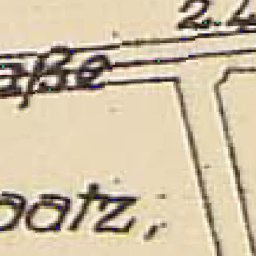 2.4
aße
aatz,